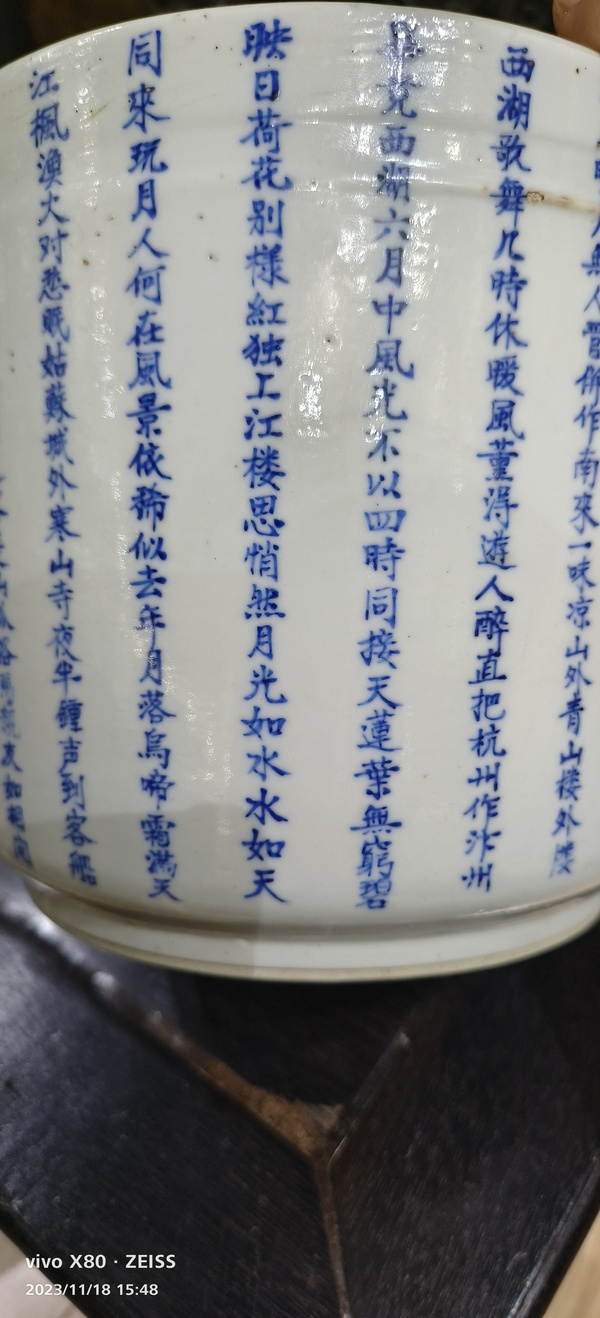 無人管併作南來一味凉山外青山楼外楼
西湖歌舞几時休暖風薰淂遊人醉直把杭州作汴州
畢竟西湖六月中風光不以四時同接天蓮葉無窮碧
映日荷花别樣紅独工江楼思悄然月光如水水如天
同來玩月人何在風景依稀似去年月落烏啼霜滿天
江楓漁火对愁眠姑蘇城外寒山寺夜半鍾声到客船
vivo X80 · ZEISS
2023/11/18 15:48